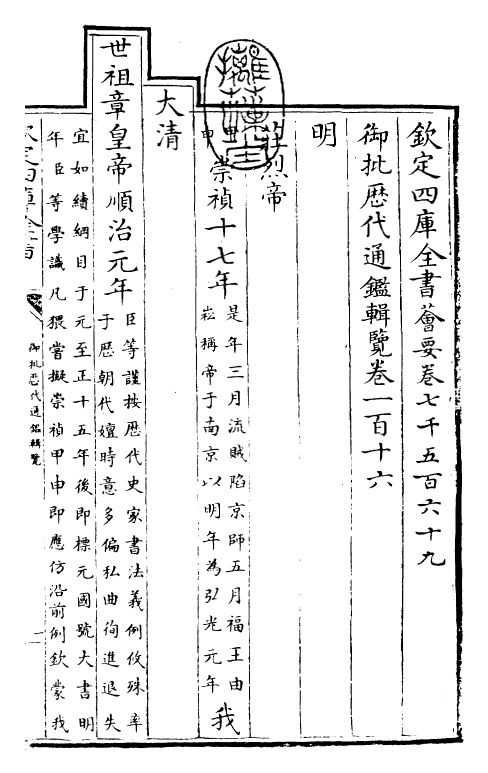 欽定四庫全書薈要卷七千五百六十九
御批厯代通鑑輯覽卷一百十六
明
莊烈帝
甲申崇禎十七年是年三月流賊陷京師五月福王由
崧稱帝于南京以明年為弘光元年我
大清
世祖章皇帝順治元年臣等謹按厯代史家書法義例攸殊率
于厯朝代嬗時意多偏私曲徇進退失
宜如續綱目于元至正十五年後即標元國號大書明
年臣等學識凡猥嘗擬崇禎甲申即應仿沿前例欽蒙我
欽定四庫全書
御批厯代通鑑輯覽